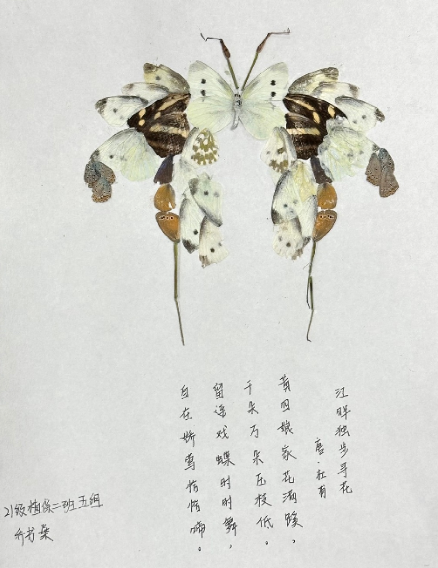 江畔独步寻花
唐·杜甫
黄四娘家花满蹊，
千朵万朵压枝低。
留连戏蝶时时舞，
自在娇莺恰恰啼。
21级植保二班五组